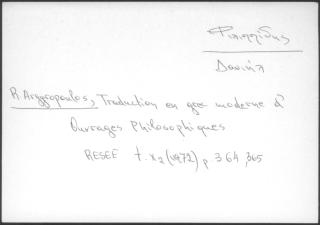 Φιλιππίδης
Δανιήλ
R. Argyropoulos, Traduction en grec moderne d'
Ouvrages Philosophiques
RESEE t. X2 (1972), p 364, 365